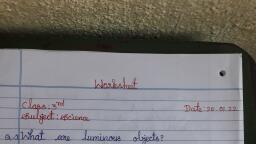 Worksheet
Class: 3rd
Subject: Science
Date: 20.01.22
What are luminous objects?